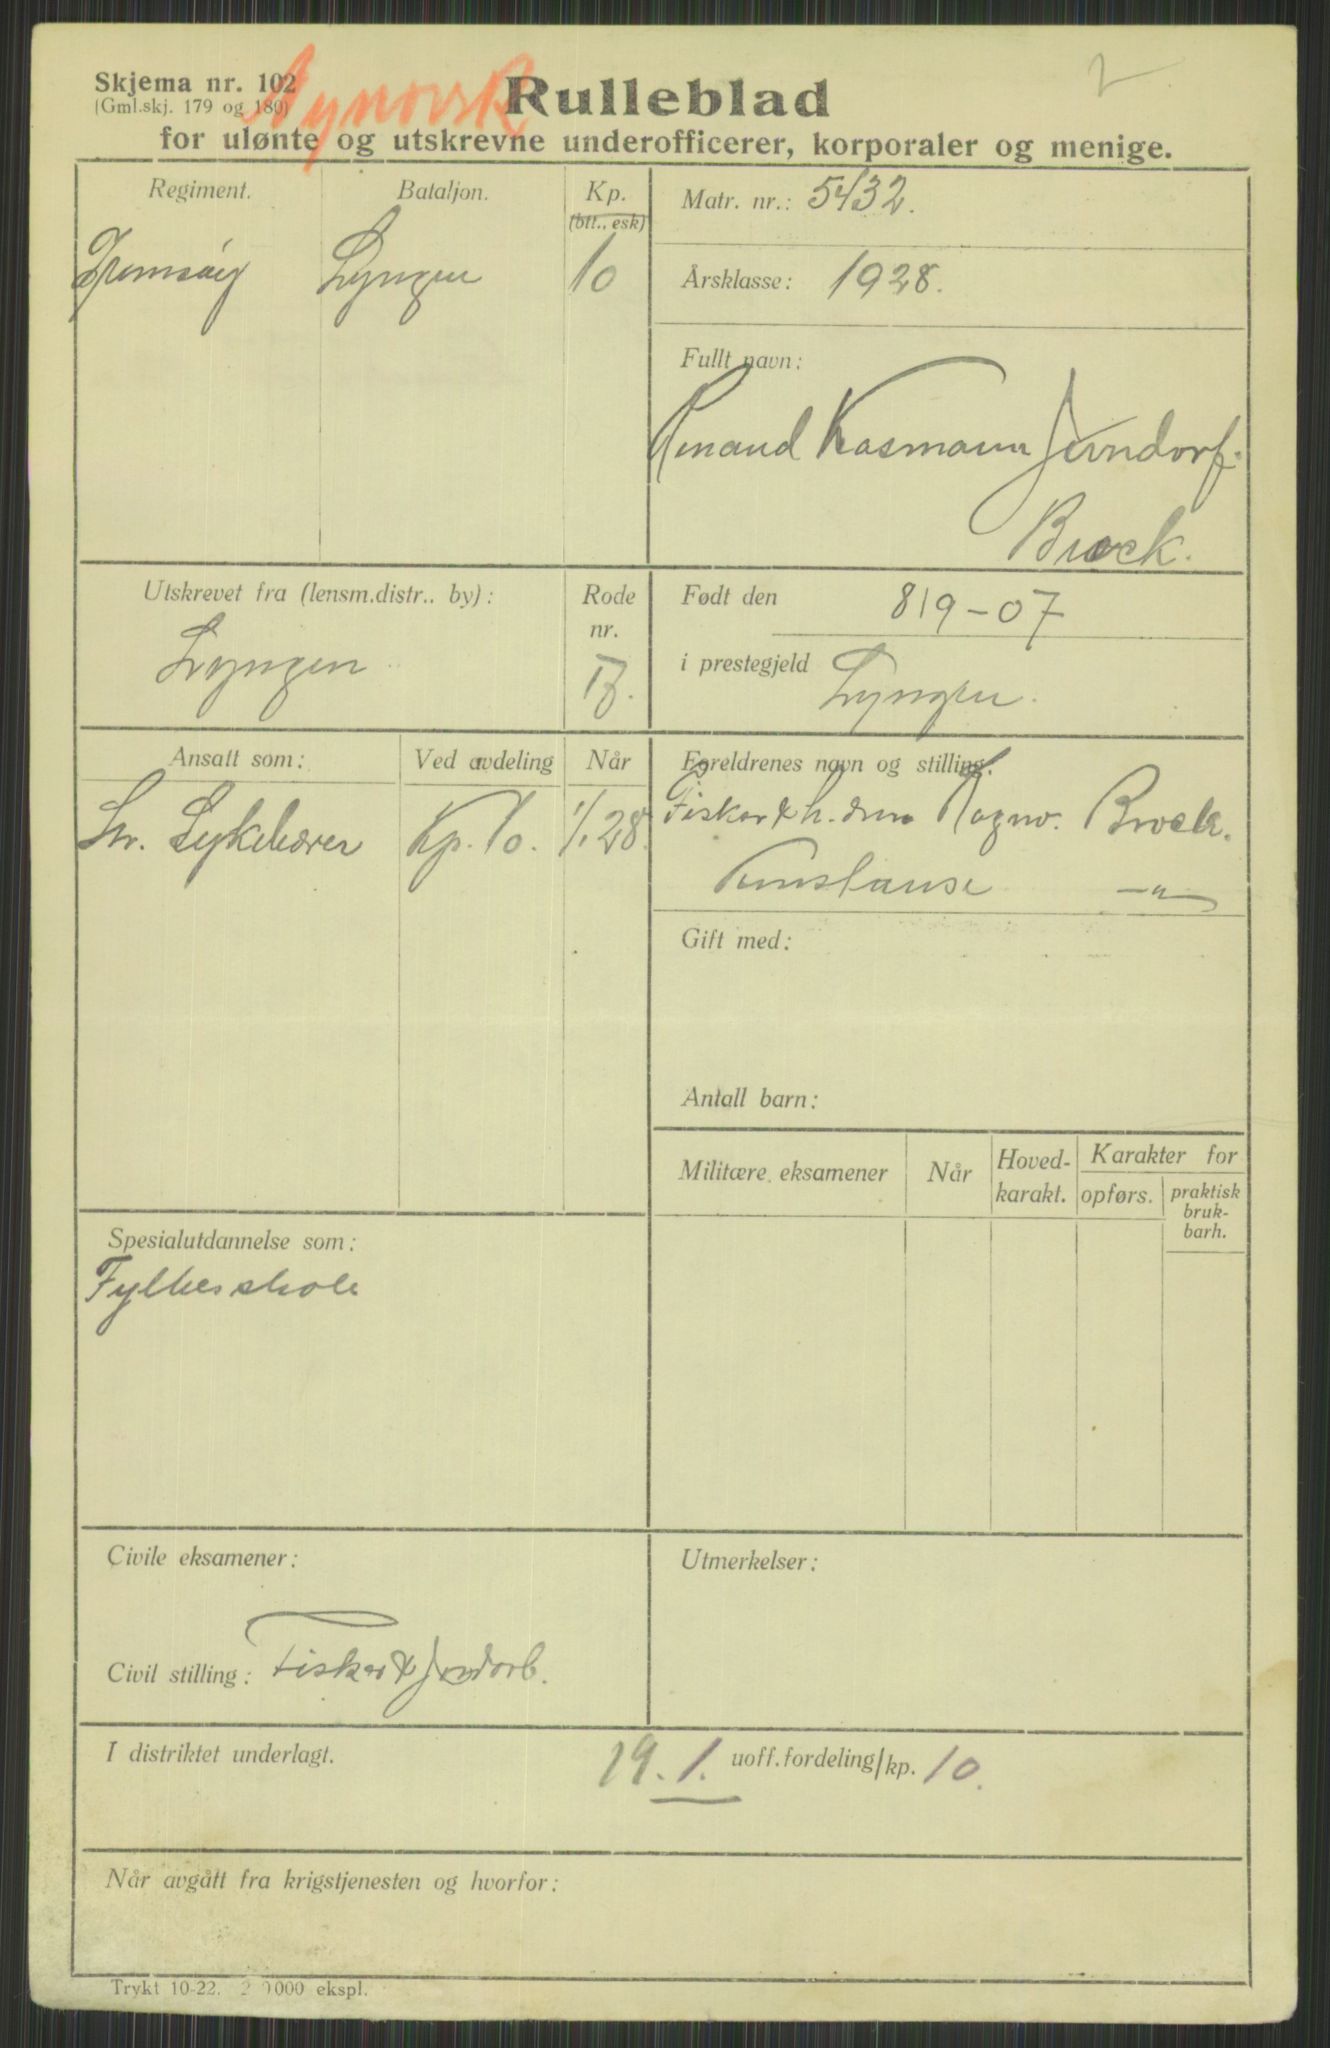 Skjema nr. 102
(Gml.skj. 179 og 180)
Nynorsk
Rulleblad
2
for ulønte og utskrevne underofficerer, korporaler og menige.
Regiment.
Bataljon.
Kp.
(btt., esk)
Lyngen
10
Matr. nr.: 5432.
Årsklasse: 1928.
Fullt navn:
Kasmann
Brock.
Utskrevet fra (lensm.distr.. by):
Lyngen
Rode
nr.
Født den 8/9-07
i prestegjeld Lyngen.
Ansatt som:
Ved avdeling
Når
Sykebærer
Kp. 10.
1/1 28.
Foreldrenes navn og stilling.
Fisker & Brock.
Konstanse —"—
Gift med:
Antall barn:
Militære eksamener
Når
Hoved-
karakt.
Karakter for
opførs.
praktisk
bruk-
barh.
Spesialutdannelse som:
Fylkesskole
Civile eksamener:
Utmerkelser:
Civil stilling: Fisker & Jordarb.
I distriktet underlagt.
19. 1. uoff.fordeling/kp. 10.
Når avgått fra krigstjenesten og hvorfor:
Trykt 10-22. 2 0000 ekspl.